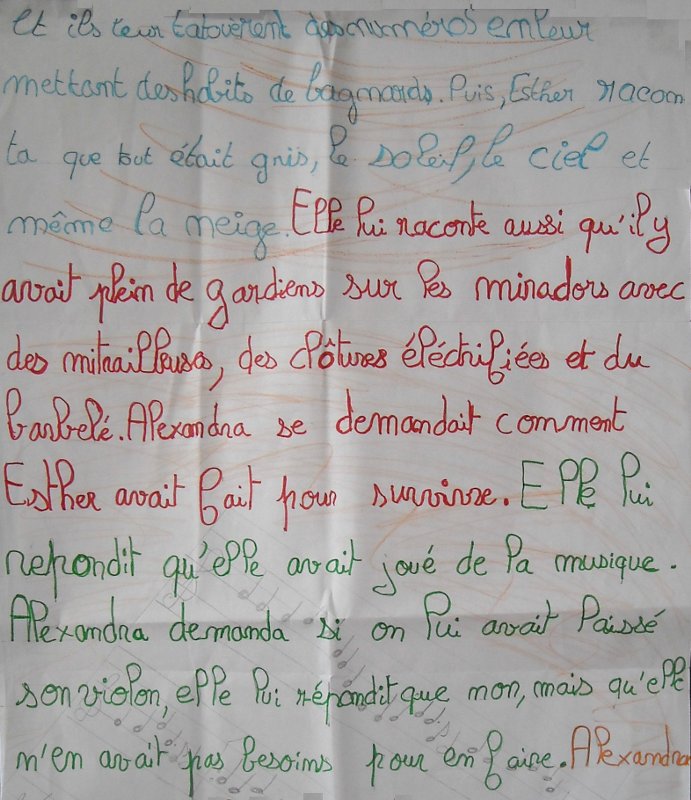 et ils leur tatouèrent des numéros en leur
mettant des habits de bagnards. Puis, Esther racon
ta que tout était gris, le soleil, le ciel et
même la neige. Elle lui raconte aussi qu'il y
avait plein de gardiens sur les miradors avec
des mitrailleuses, des clôtures électrifiées et du
barbelé. Alexandra se demandait comment
Esther avait fait pour survivre. Elle lui
repondit qu'elle avait joué de la musique.
Alexandra demanda si on lui avait laissé
son violon, elle lui répondit que non, mais qu'elle
n'en avait pas besoins pour en faire. Alexandra